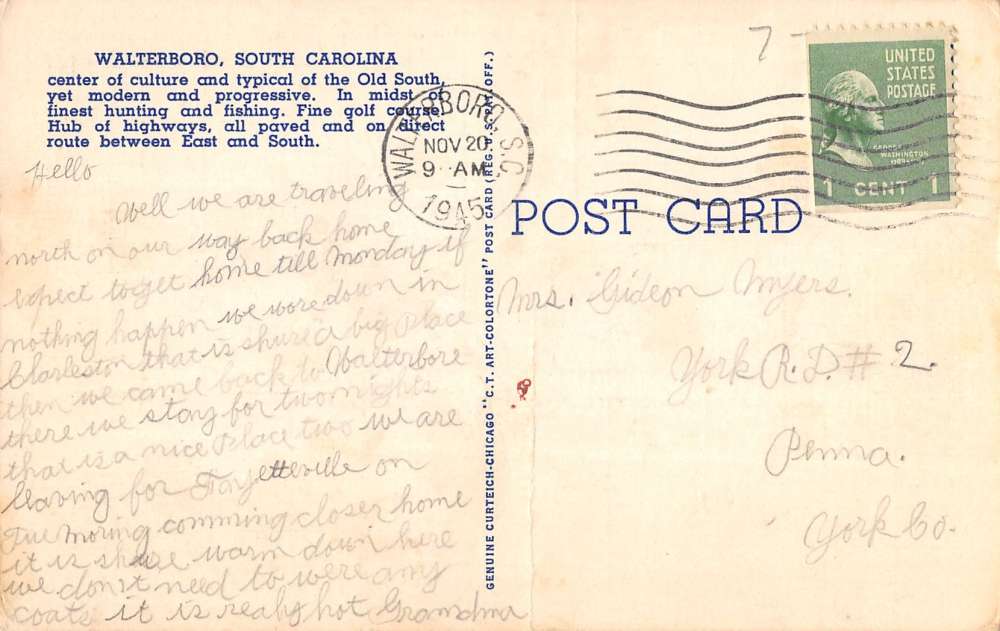 WALTERBORO, SOUTH CAROLINA
center of culture and typical of the Old South,
yet modern and progressive. In midst of
finest hunting and fishing. Fine golf course.
Hub of highways, all paved and on direct
route between East and South.
Hello
Well we are traveling
north on our way back home
expect to get home till Monday if
nothing happen we wore down in
Charleston that is shure a big place
then we came back to Walterbore
there we stay for two nights
that is a nice place two we are
leaving for Fayetteville on
Tue moring comming closer home
it is shure warm down here
we don't need to were any
coats it is realy hot Grandma
GENUINE CURTEICH-CHICAGO "C.T. ART-COLORTONE" POST CARD (REG. U.S. PAT. OFF.)
WALTERBORO, S.C.
NOV 20
9 AM
1945
7
UNITED
STATES
POSTAGE
GEORGE
WASHINGTON
1 CENT 1
POST CARD
Mrs. Gideon Myers.
York R.D. # 2.
Penna.
York Co.